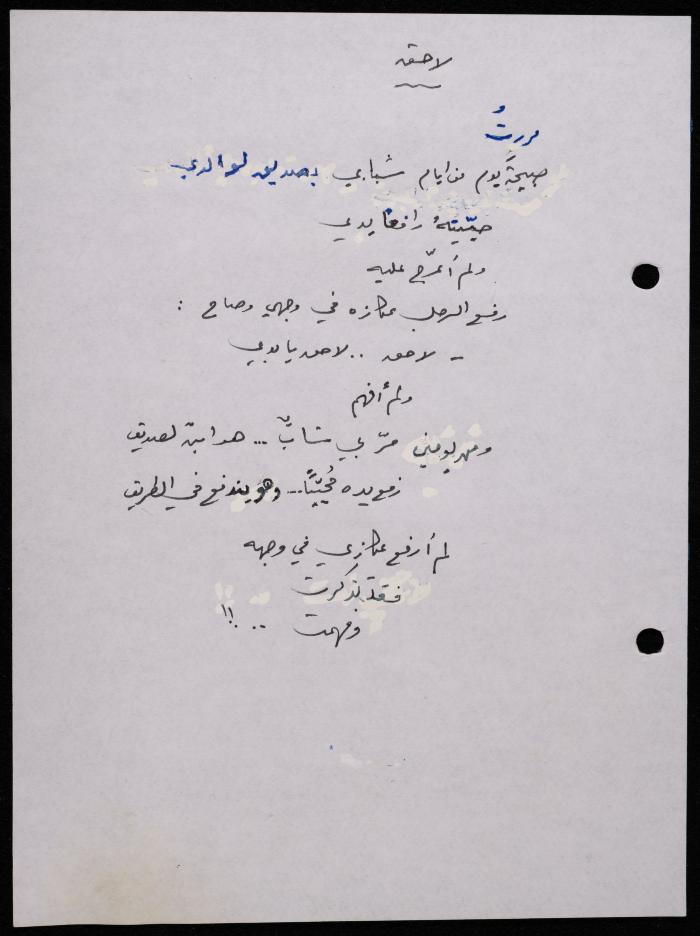 لاحق
مررتُ
صبيحةَ يوم من ايام شبابي بصديق لوالدي
حيّيتهُ رافعا يدي
ولم أعرّج عليه
رفع الرجل عكازه في وجهي وصاح :
- لاحق .. لاحق يا
ولم أفهم
ومر بي شابٌّ ... هو ابن لصديق
رفع يده مُحيّيًا... وهو يندفع في الطريق
لم أرفع عكازي في وجهه
فقد تذكرت
وفهمت .. !!